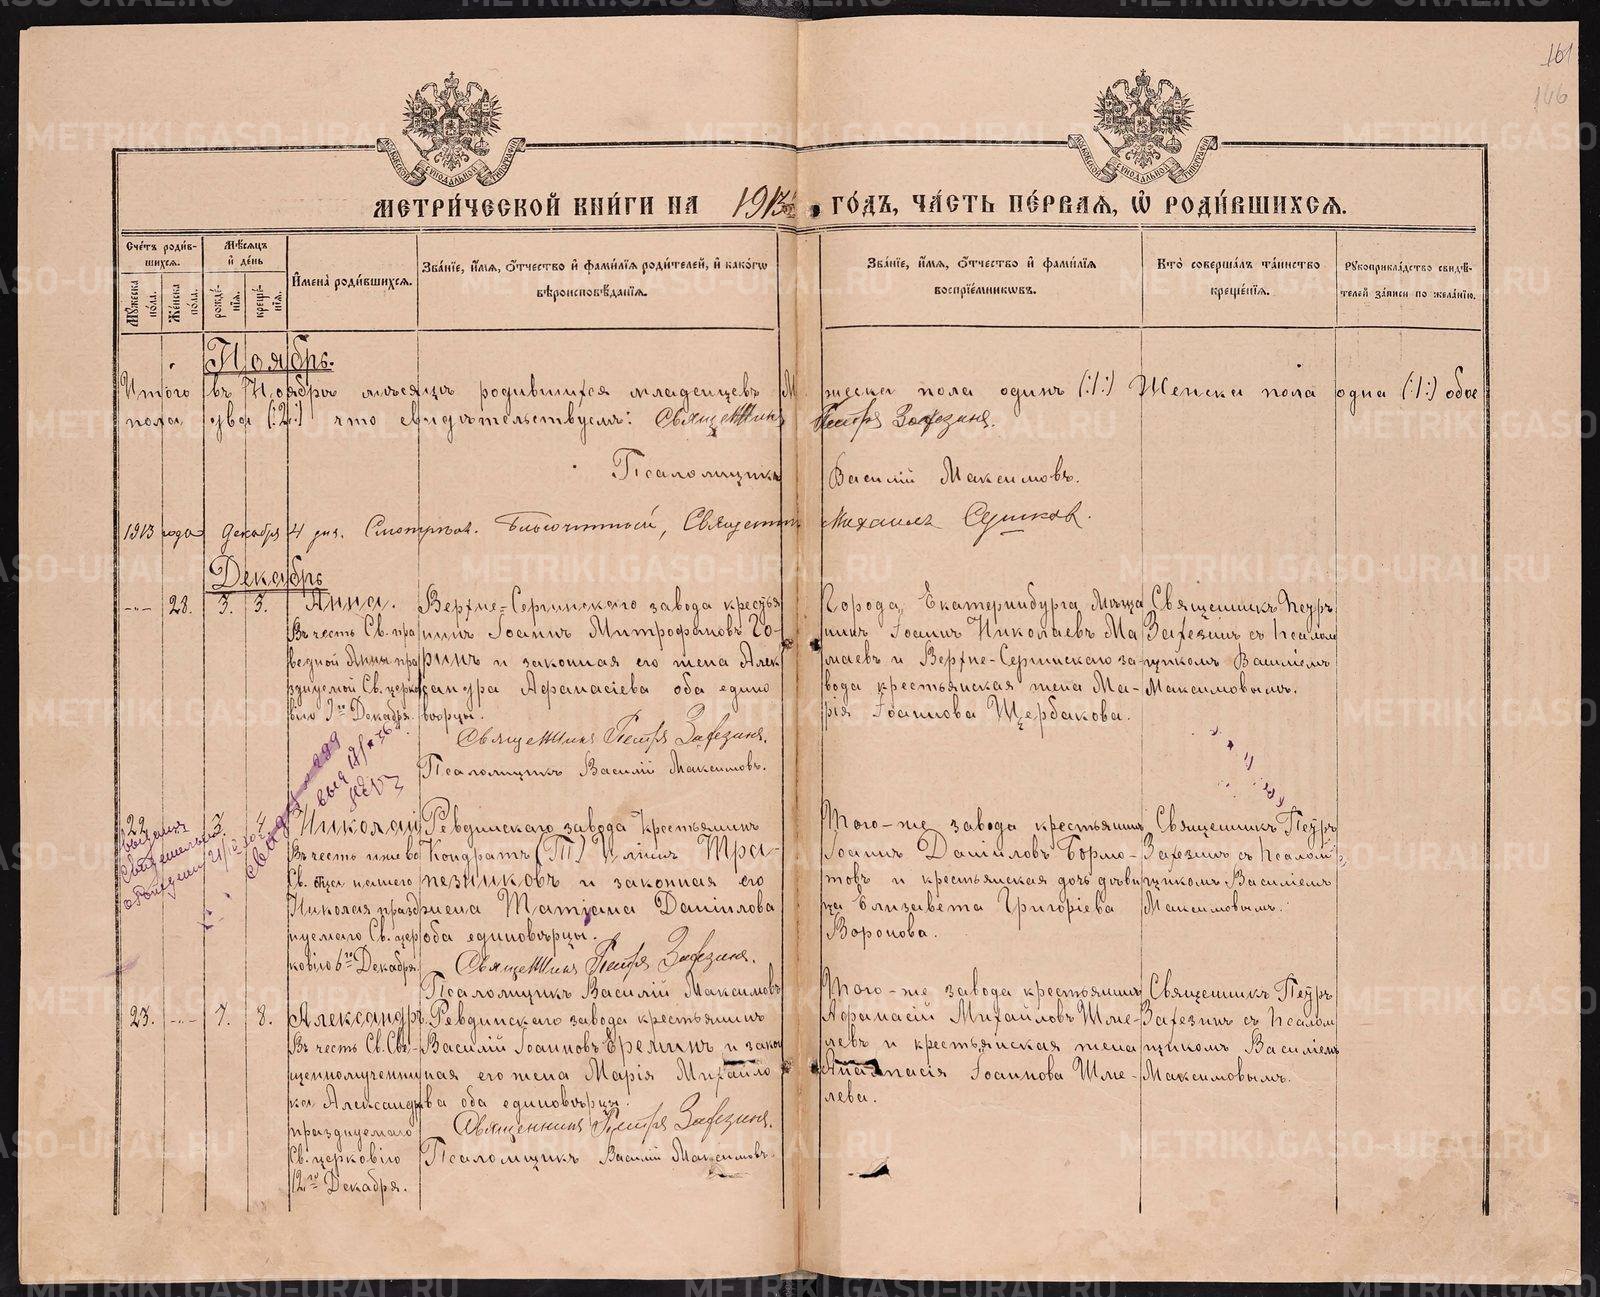 161
146
МЕТРИ́ЧЕСКОЙ КНИ́ГИ НА 1913 ГО́ДЪ, ЧА́СТЬ ПЕ́РВАЯ, Ѡ҆ РОДИ́ВШИХСЯ.
Сче́тъ роди́вшихся.
Му́жеска по́ла.
Же́нска по́ла.
Мѣ́сяцъ и҆ де́нь
рожде́нїя.
креще́нїя.
И҆мена̀ роди́вшихся.
Зва́нїе, и҆́мя, ѻ҆́тчество и҆ фами́лїя роди́телей, и҆ како́гѡ вѣроисповѣ́данїя.
Зва́нїе, и҆́мя, ѻ҆́тчество и҆ фами́лїя воспрїе́мникѡвъ.
Кто̀ соверша́лъ та́инство креще́нїя.
Рꙋкоприкла́дство свидѣ́телей за́писи по жела́нїю.
Ноябрь.
Итого въ Ноябрѣ мѣсяцѣ родившихся младенцевъ Мужеска пола одинъ (:1:) Женска пола одна (:1:) обоего
пола два (:2:) что свидѣтельствуемъ: Священникъ Петръ
Псаломщикъ Василій Максимовъ.
1913 года Декабря 4 дня. Смотрѣлъ. Благочинный, Священникъ Михаилъ
Декабрь
28. 3. 3. Анна.
Въ честь Св. пра
ведной Анны пра
зднуемой Св. церко
вію 9го Декабря.
Верхне-Сергинскаго завода крестья
нинъ Іоаннъ Митрофановъ Го-
ринъ и законная его жена Алек
сандра Афанасіева оба едино
вѣрцы.
Священникъ Петръ
Псаломщикъ Василій Максимовъ.
Города Екатеринбурга Мѣща
нинъ Іоаннъ Николаевъ Ма
маевъ и Верхне-Сергинскаго за-
вода крестьянская жена Ма-
рія Іоаннова Щербакова.
Священникъ Петръ
съ псалом
щикомъ Василіемъ
Максимовымъ.
22 3. 4. Николай
Въ честь иже во
Св. отца нашего
Николая празд
нуемаго Св. цер
ковію 6го Декабря.
Ревдинскаго завода крестьянинъ
Кондратъ (Т) Илiинъ Тра-
пезниковъ и законная его
жена Татіана Даніилова
оба единовѣрцы.
Священникъ Петръ
Псаломщикъ Василій Максимовъ
Того-же завода крестьянинъ
Іоаннъ Даніиловъ Бормо-
товъ и крестьянская дочь дѣви
ца Елизавета Григоріева
Воронова.
Священникъ Петръ
съ псалом
щикомъ Василіемъ
Максимовымъ.
23. 7. 8. Александръ.
Въ честь Св. Свя-
щенномученни
ка Александра
празднуемаго
Св. церковію
12го Декабря.
Ревдинскаго завода крестьянинъ
Василій Іоанновъ Ереминъ и закон
ная его жена Марія Михайло
ва оба единовѣрцы.
Священникъ Петръ
Псаломщикъ Василій Максимовъ
Того-же завода крестьянинъ
Афанасій Михайловъ Шме-
левъ и крестьянская жена
Анастасія Іоаннова Шме-
лева.
Священникъ Петръ
съ псалом
щикомъ Василіемъ
Максимовымъ.
METRIKI.GASO-URAL.RU